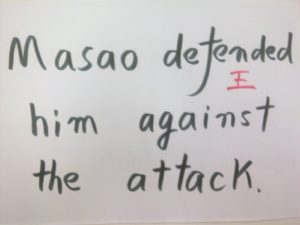 Masao defended
王
him against
the attack.